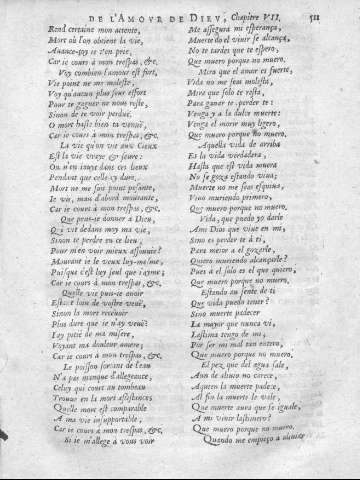 DE L'AMOVR DE DIEV, Chapitre VII. 511
Rend certaine mon attente,
Mort où l'on obtient la vie,
Auance-toy ie t'en prie,
Car ie cours à mon trespas, &c.
Voy combien l'amour est fort,
Vie point ne me moleste,
Voy qu'aucun plus seur effort
Pour te gagner ne nous reste,
Sinon de te voir perduë.
O mort haste bien ta venuë,
Car ie cours à mon trespas, &c.
La vie qu'on vit aux Cieux
Est la vie vraye & seure:
On n'en iouye dans ces lieux
Pendant que celle-cy dure.
Mort ne me sois point pesante,
Ie vis, man d'abord mourante,
Car ie cours à mon trespas, &c.
Que peut-te donner à Dieu,
Qui vit dedans moy ma vie,
Sinon te perdre en ce lieu,
Pour m'en voir mieux assouuie?
Mourant ie le veux luy-mesme,
Puisque c'est luy seul que i'ayme;
Car ie cours à mon trespas, &c.
Quelle vie puis-ie avoir
Estant loin de vostre veuë,
Sinon la mort receuoir
Plus dure que ie n'ay veuë?
I'ay pitié de ma misere,
Voyant ma douleur amere;
Car ie cours à mon trespas, &c.
Le poisson sortant de l'eau
N'a pas manque d'allegeance,
Celuy qui court au tombeau
Trouue en la mort assistances
Quelle mort est comparable
A ma vie insupportable,
Car ie cours à mon trespas, &c.
Si ie m'allege à vous voir
Me assegura mi esperança,
Muerte do el viuir se alcança,
No te tardes que te espero,
Que muero porque no muero.
Mira que el amor es fuerte,
Vida no me seas molesta,
Mira que solo te resta,
Para ganar te perder te:
Venga ya la dulce muerte:
Venga el morir muy ligero,
Que muero porque no muero,
Aquella vida de arriba
Es la vida verdadera,
Hasta que est vida muera
No se goza estando viua;
Muerte no me seas esquiua,
Viuo muriendo primero,
Que muero porque no muero.
Vida, que puedo yo darle
Ami Dios que viue en mi,
Sino es perder te à ti,
Para mejor a el gozarle,
Quiero muriendo alcançarle?
Pues à el solo es el que quiero,
Que muero porque no muero.
Estando au sente de ti
Que vida puedo tener?
Sino muerte padecer
La mayor que nunca vi,
Lastima tengo de mi,
Por ser mi mal tan entero,
Que muero porque no muero.
El pez que del agua sale,
Aun de aliuio no carece,
A quien la muerte padece,
Al fin la muerte le vale,
Que muerte aura que se iguale,
A mi viuir lastimero?
Que muero porque no muero.
Quando me empieço a aliuiar